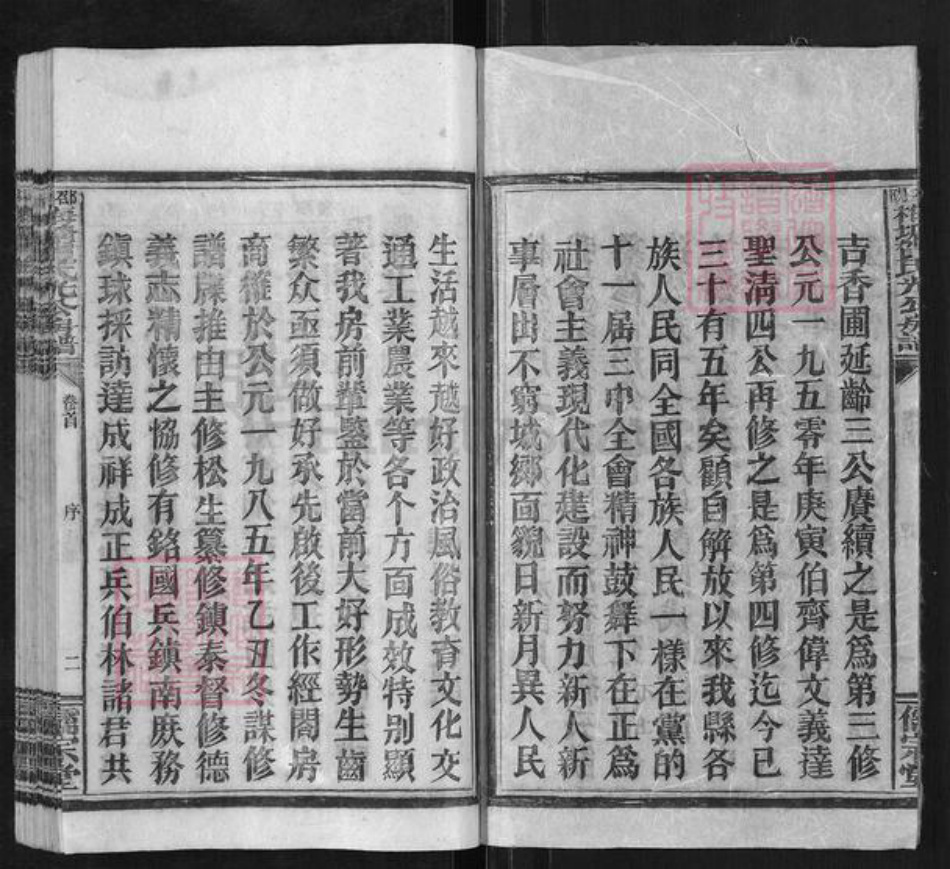 吉香圃延齡三公賡續之是爲第三修
公元一九五零年庚寅伯齊偉文義達
聖清四公再修之是爲第四修迄今已
三十有五年矣顧自解放以來我縣各
族人民同全國各族人民一樣在黨的
十一届三中全會精神鼓舞下在正爲
社會主義現代化建設而努力新人新
事層出不窮城鄉面貌日新月異人民
卷首
序
二
生活越來越好政治風俗教育文化交
通工業農業等各个方面成效特别顯
著我房前輩鑒於當前大好形勢生齒
繁众亟須做好承先啟後工作經閤房
商榷於公元一九八五年乙丑冬謀修
譜牒推由主修松生纂修鎮泰督修德
義志精懷之協修有銘國兵鎮南庶務
鎮球採訪達成祥成正兵伯林諸君共